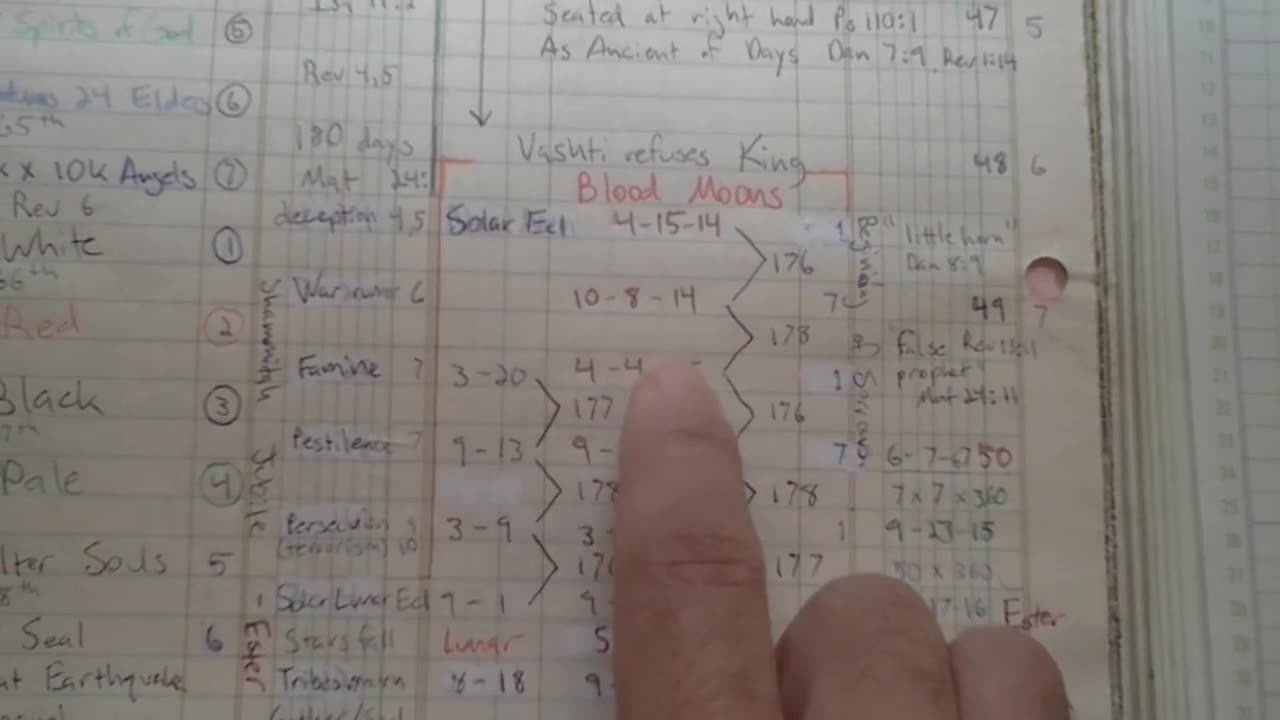 Seated at right hand Ps 110:1 47 5
As Ancient of Days Dan 7:9 Rev 1:14
Spirits of God 5
Rev 4,5
24 Elders 6
180 days
Vashti refuses King 48 6
x 10K Angels 7 Mat 24:
Blood Moons
Rev 6 deception 4,5 Solar Ecl 4-15-14 1 "little horn"
White 1 176 Dan 8:9
War 6 10-8-14 7 49 7
Red 2 178 false Rev 13:11
Famine 7 3-20 4-4 1 prophet"
Black 3 177 176 Mat 24:11
Pestilence 7 9-13 9- 7 6-7-67 50
Pale 4 178 178 7 x 7 x 360
Shemitah
Jubile
Persecution 9 3-9 3- 1 9-23-15
(terrorism) 10
lter Souls 5 177 50 x 360
Solar Lunar Ecl 9-1 9- 17-16 Ester
Seal 6 Stars fall Lunar 5
Ester
at Earthquake Tribes mourn 8-18 9-